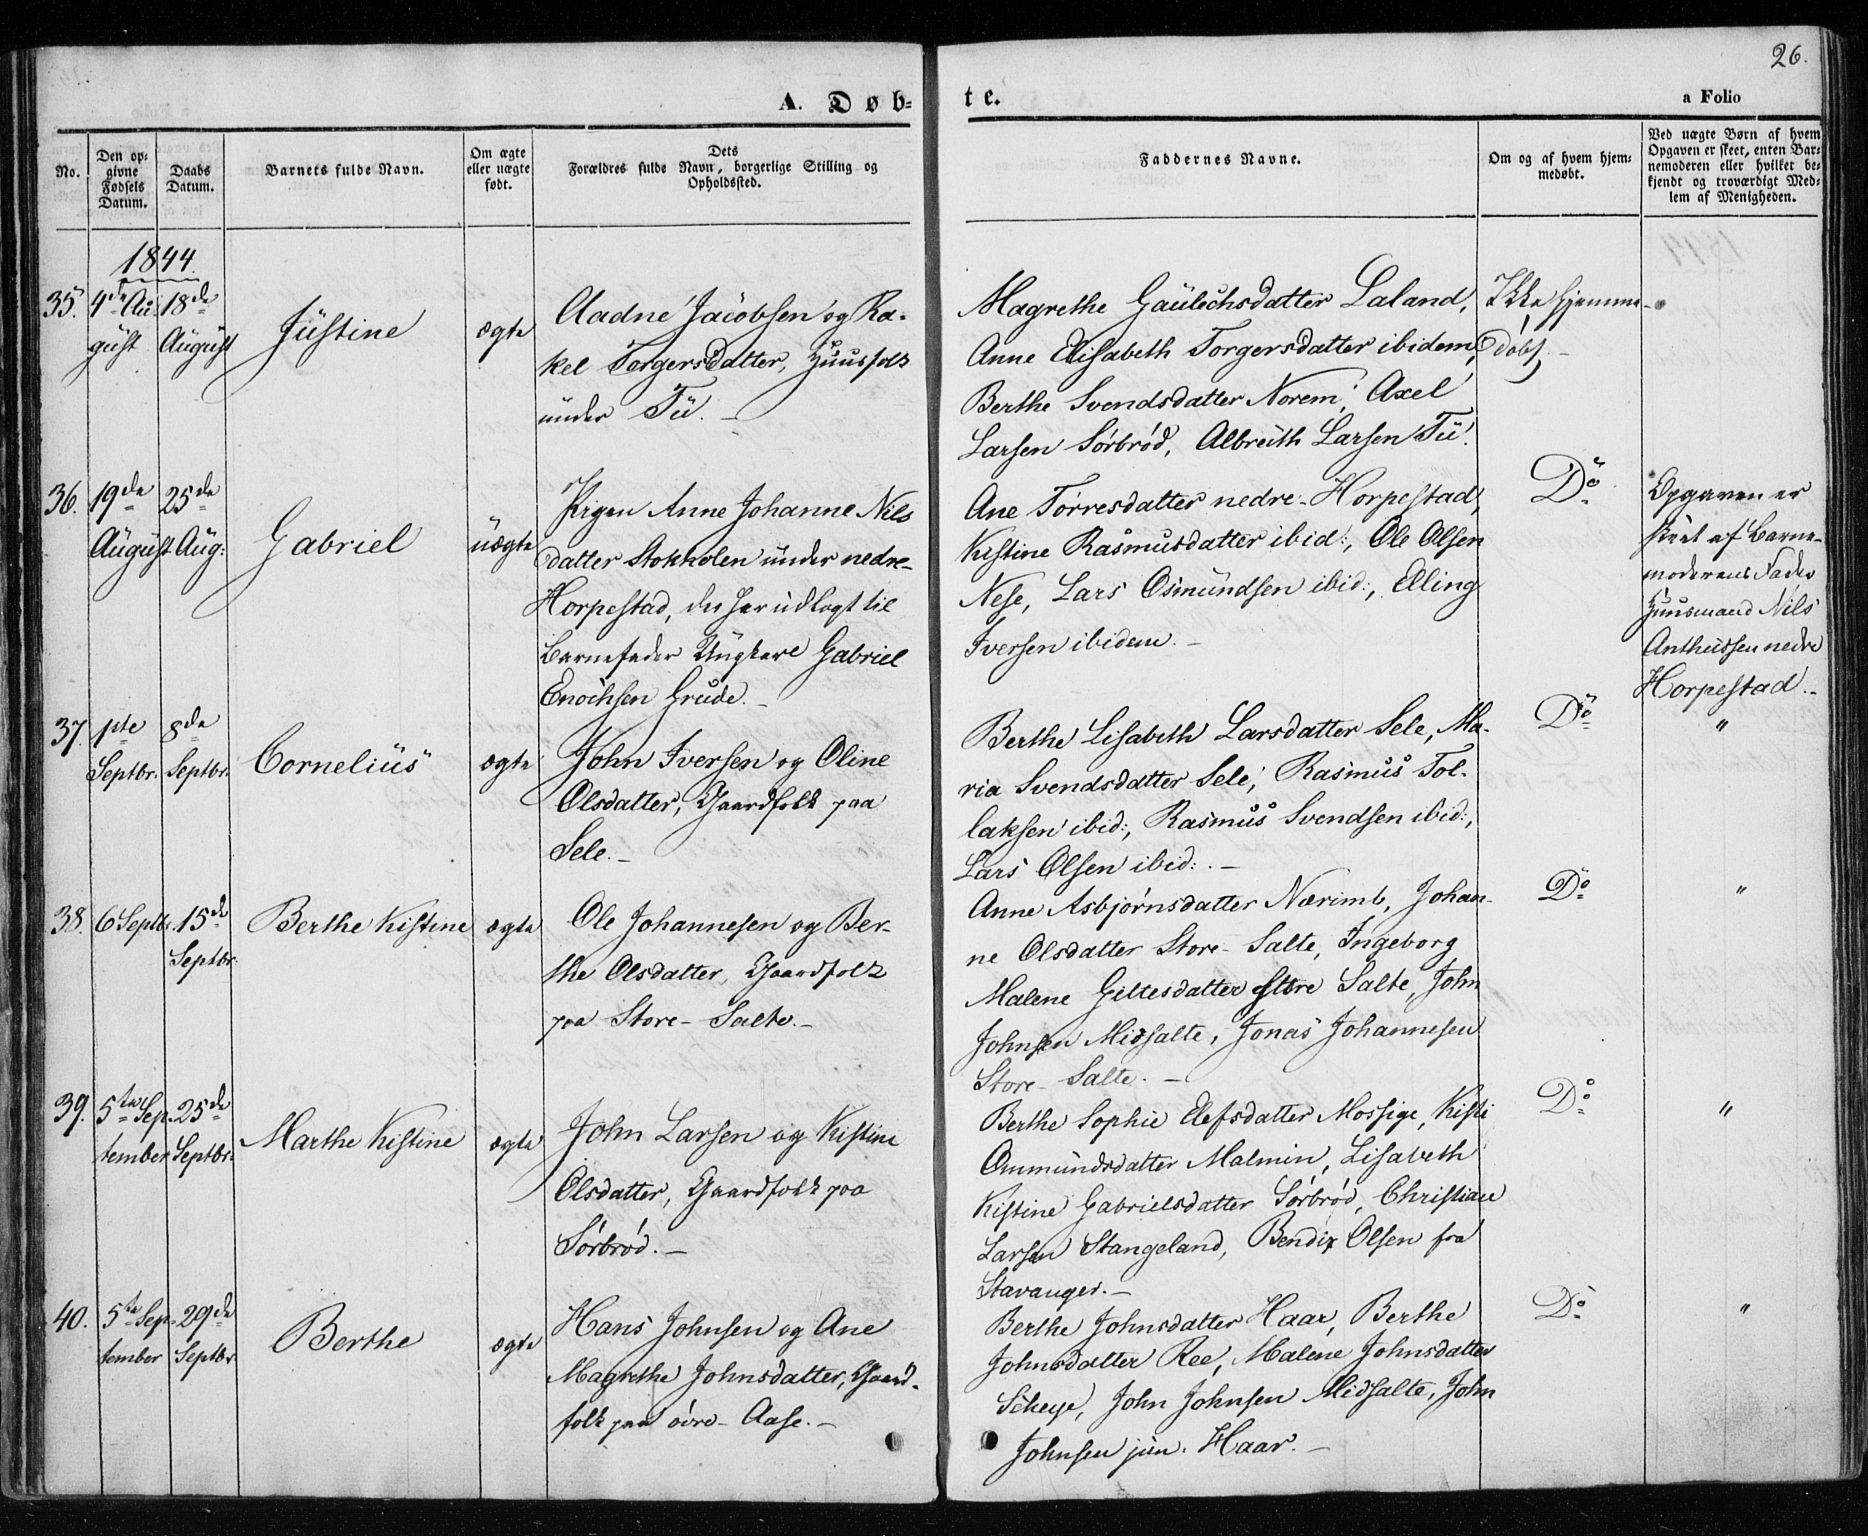 26.
A. Døb-
te.
a Folio
No.
Den op-
givne
Fødsels
Datum.
Daabs
Datum.
Barnets fulde Navn.
Om ægte
eller uægte
født.
Dets
Forældres fulde Navn, borgerlige Stilling og
Opholdssted.
Faddernes Navne.
Om og af hvem hjem-
medøbt.
Ved uægte Børn af hvem
Opgaven er skeet, enten Bar-
nemoderen eller hvilket be-
kjendt og troværdigt Med-
lem af Menigheden.
1844.
35.
4de Au-
gust
18de
August
Justine
ægte
Aadne Jacobsen og Ra-
kel Torgersdatter, Huusfolk
under Tu. -
Magrethe Gaulechsdatter Laland,
Anne Elisabeth Torgersdatter ibidem,
Berthe Svendsdatter Norem, Axel
Larsen Sørbrød, Albreith Larsen Tu.
Ikke hjemme-
døbt. -
36.
19de
August
25de
Aug:
Gabriel
uægte
Pigen Anne Johanne Nils
datter Stokholen under nedre-
Horpestad, der har udlagt til
Barnefader Ungkarl Gabriel
Enochsen Grude. -
Ane Torresdatter nedre-Horpestad,
Kistine Rasmusdatter ibid:, Ole Olsen
Nese, Lars Osmundsen ibid:, Elling
Iversen ibidem. -
Do
Opgaven er
skeet af Barne-
moderens Fader
Huusmand Nils
Anthussen nedre
Horpestad. -
37.
1ste
Septbr.
8de
Septbr.
Cornelius
ægte
John Iversen og Oline
Olsdatter, Gaardfolk paa
Sele. -
Berthe Lisabeth Larsdatter Sele, Ma-
ria Svendsdatter Sele, Rasmus Tol-
laksen ibid:, Rasmus Svendsen ibid:,
Lars Olsen ibid: . -
Do
"
38.
6 Septb.
15de
Septbr.
Berthe Kistine
ægte
Ole Johannesen og Ber-
the Olsdatter, Gaardfolk
paa Store- Salte. -
Anne Asbjørnsdatter Nærimb, Johan-
ne Olsdatter Store- Salte, Ingeborg
Malene Giltesdatter Store Salte, John
Johnsen Midsalte, Jonas Johannesen
Store- Salte. -
Do
"
39.
5te Sep-
tember
25de
Septbr.
Marthe Kistine
ægte
John Larsen og Kistine
Olsdatter, Gaardfolk paa
Sørbrød. -
Berthe Sophie Elefsdatter Mossige, Kisti
Ommundsdatter Malmin, Lisabeth
Kistine Gabrielsdatter Sørbrød, Christian
Larsen Stangeland, Bendix Olsen fra
Stavanger. -
Do
"
40.
5te Sep-
tember
29de
Septbr
Berthe
ægte
Hans Johnsen og Ane
Magrethe Johnsdatter, Gaard-
folk paa øvre- Aase. -
Berthe Johnsdatter Haar, Berthe
Johnsdatter Ree, Malene Johnsdatter
Scheye, John Johnsen Midsalte, John
Johnsen jun. Haar. -
Do
"